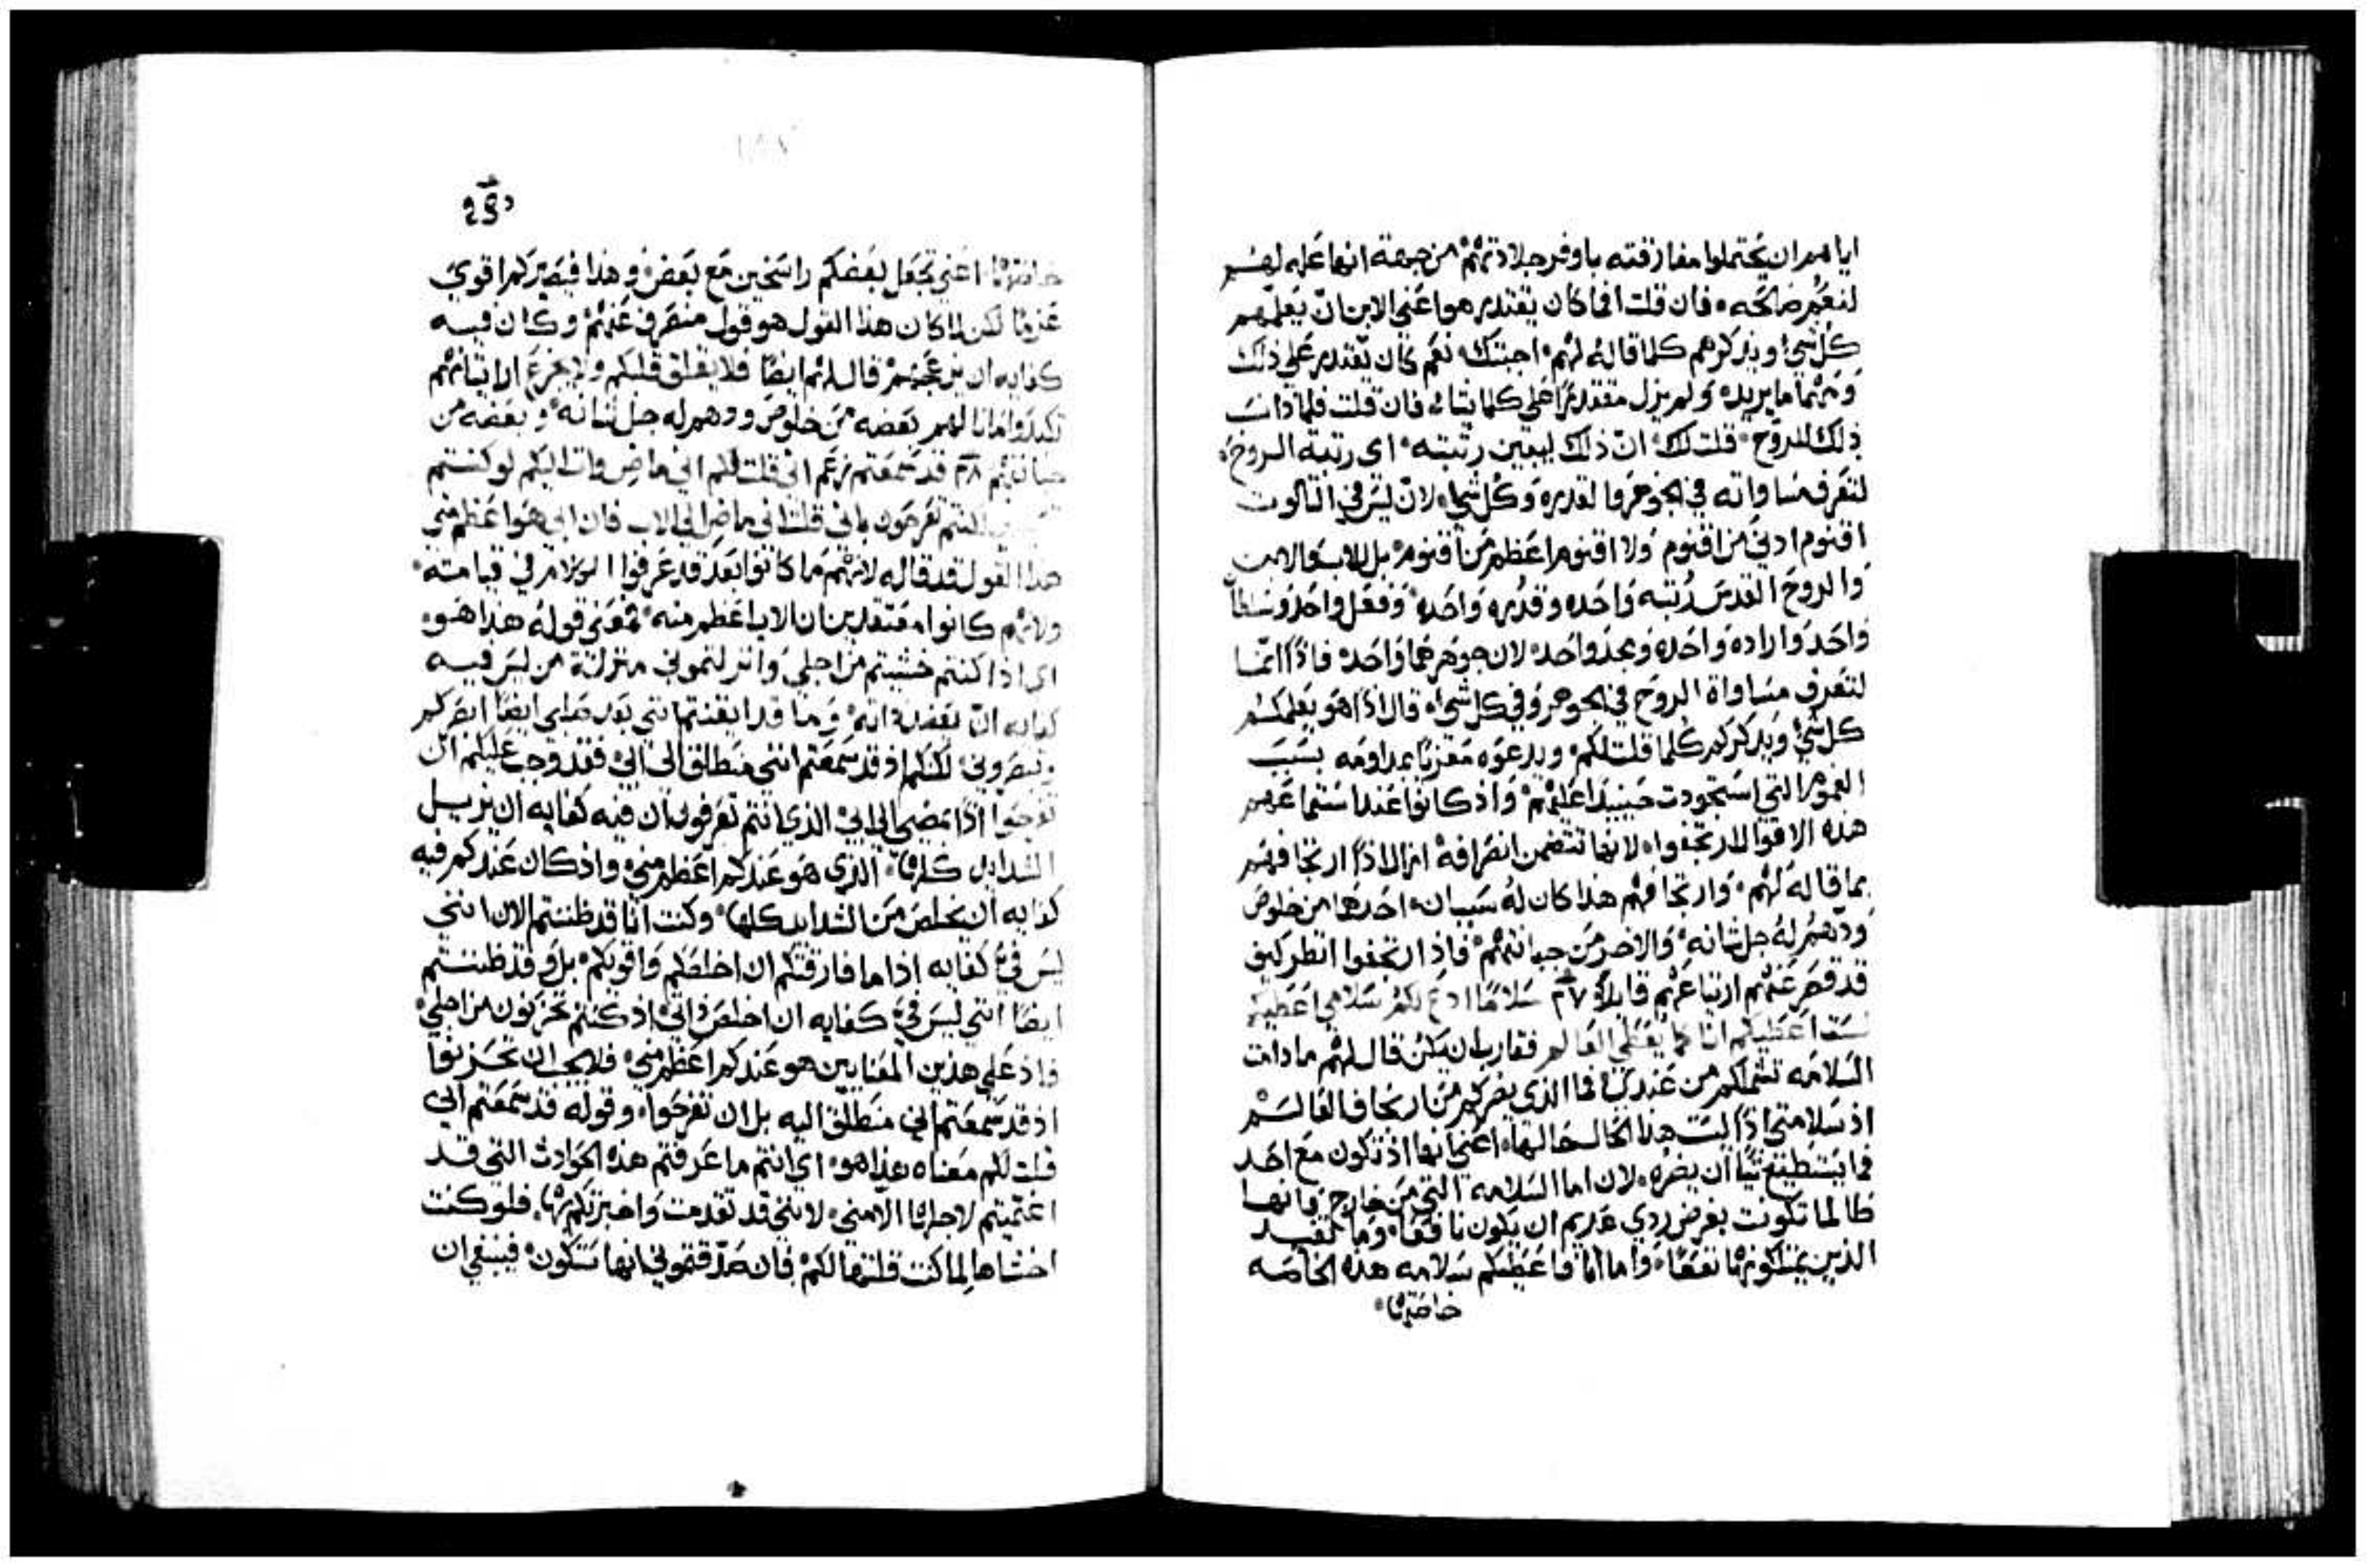 اياهم ان يحتملوا مفارقته باوفر جلادتهم من جهة انها عله لهم
لنعم صالحه فان قلت افما كان يقتدر هو اعني الابن ان يعلمهم
كل شي ويذكرهم كلما قاله لهم اجبتك نعم كان يقتدر علي ذلك
ومهما يريده ولم يزل مقتدرا علي كلما يشاء فان قلت فلماذا نسب
ذلك للروح قلت لك ان ذلك ليبين رتبته اي رتبة الروح
لتعرف مساواته في الجوهر والقدره وكل شي لان ليس في الثالوث
اقنوم ادني من اقنوم ولا اقنوم اعظم من اقنوم بل للاب والابن
والروح القدس رتبه واحده وقدره واحده وفعل واحد وسلطان
واحد واراده واحده ومجد واحد لان جوهرهما واحد فاذا انما
لتعرف مساواة الروح في الجوهر وفي كل شي قال اذا هو يعلمكم
كل شي ويذكركم كلما قلت لكم ويدعوه معزيا بمداومه بسبب
الغموم التي استحودت حينيذ عليهم واذ كانوا عند استماعهم
هذه الاقوال ارتجفوا لانها تتضمن انصرافه ازال اذا ارتجافهم
بما قاله لهم وارتجافهم هذا كان له سببان احدهما من خلوص
ودهم له جل شانه والاخر من جبانتهم فاذ ارتجفوا انظر كيف
قد قصر عنهم ارتياعهم قايلا ٢٧ سلاما ادع لكم سلامي اعطيكم
لست اعطيكم انا كما يعطي العالم فقارب ان يكن قال لهم ما دامت
السلامه تشملكم من عندي فما الذي يضركم من ارجاف العالم
اذ سلامتي اذا ليست هذا الحال حالها اعني انها اذ تكون مع احد
فما يستطيع شيا ان يضره لان اما السلامه التي من خارج فانها
طالما تكونت بغرض ردي عديم ان يكون نافعا وما تفيد
الذين يمتلكونها نفعا واما انا فاعطيكم سلامه هذه الخاصه
خاصتها
خاصتها اعني تجعل بعضكم راسخين مع بعض وهذا فيصيركم اقوي
عزما لكن لما كان هذا القول هو قول منصرف عنهم وكان فيه
كفايه ان يزعجهم قال لهم ايضا فلا يقلق قلبكم ولا يجزع
لهم بعضه من خلوص ودهم له جل شانه وبعضه من
جبانتهم ٢٨ قد سمعتم اني قلت لكم اني ماض وات اليكم لو كنتم
كنتم تفرحون باني قلت اني ماض الي الاب فان ابي هو اعظم مني
هذا القول قد قاله لانهم ما كانوا بعد قد عرفوا الكلام في قيامته
ولانهم كانوا معتقدين ان الاب اعظم منه فمعني قوله هذا هو
اي اذا كنتم خشيتم من اجلي وانزلتموني منزلة من ليس فيه
كفايه ان يعضد ذاته وما قد ايقنتم انني بعد صلبي ايضا ابصركم
وتبصروني لكنكم اذ قد سمعتم انني منطلق الي ابي فقد وجب عليكم ان
تفرحوا اذا بمضيي الي ابي الذي انتم تعرفون ان فيه كفايه ان يزيل
الشدايد كلها الذي هو عندكم اعظم مني واذ كان عندكم فيه
كفايه ان يخلص من الشدايد كلها وكنت انا قد ظننتم الان انني
ليس في كفايه اذا ما فارقتكم ان اخلصكم واقويكم بل وقد ظننتم
ايضا انني ليس في كفايه ان اخلص ذاتي اذ كنتم تحزنون من اجلي
فاذ علي هذين المعنايين هو عندكم اعظم مني فلا يجب ان تحزنوا
اذ قد سمعتم اني منطلق اليه بل ان تفرحوا وقوله قد سمعتم اني
قلت لكم معناه هذا هو اي انتم ما عرفتم هذه الحوادث التي قد
اغتميتم لاجلها الا مني لانني قد تقدمت واخبرتكم بها فلو كنت
اخشاها لما كنت قلتها لكم فان صدقتموني انها ستكون فينبغي ان